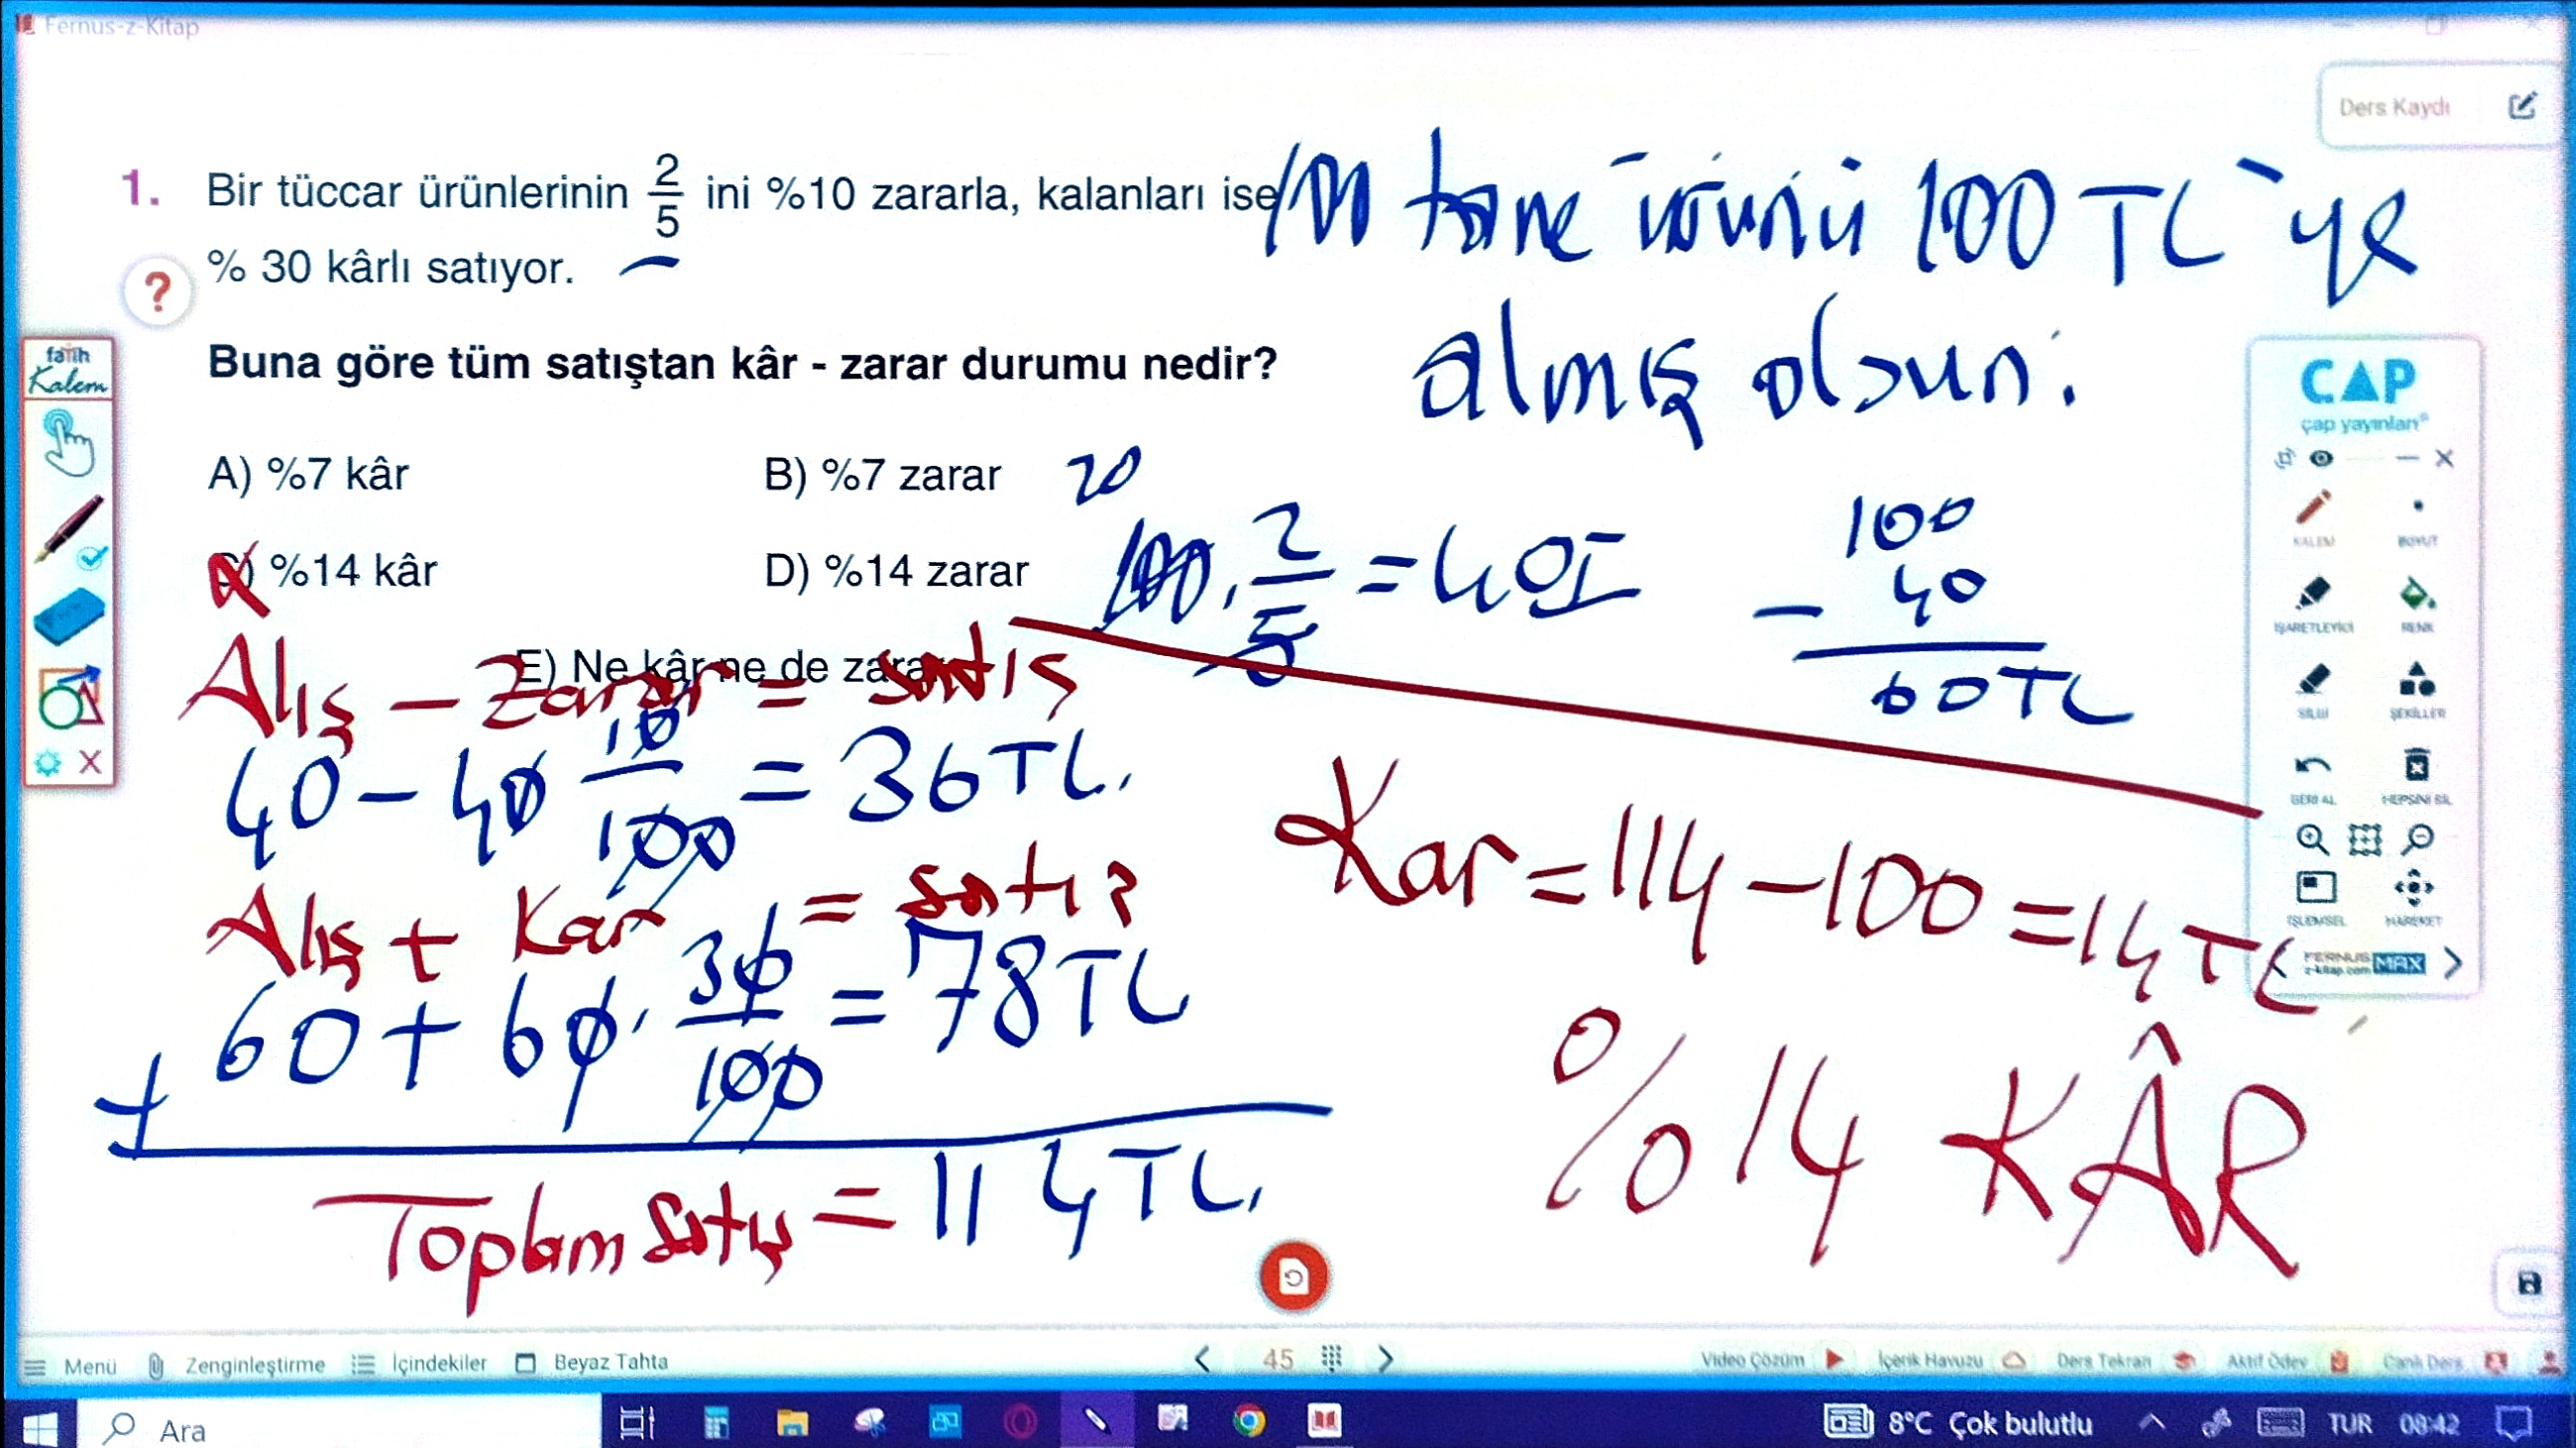 Fernus-z-Kitap
Ders Kaydı
1. Bir tüccar ürünlerinin 2/5 ini %10 zararla, kalanları ise
% 30 kârlı satıyor.
?
Buna göre tüm satıştan kâr - zarar durumu nedir?
A) %7 kâr B) %7 zarar
C) %14 kâr D) %14 zarar
E) Ne kâr ne de zarar
100 tane ürünü 100 TL'ye
almış olsun.
20
100 . 2/5 = 40
100
- 40
60 TL
Alış - Zarar = satış
40 - 40 10/100 = 36 TL.
Alış + Kar = satış
60 + 60 . 30/100 = 78 TL
+
Toplam satış = 114 TL.
Kar = 114 - 100 = 14 TL
%14 KÂR
fatih
Kalem
CAP
çap yayınları
KALEM BOYUT
İŞARETLEYİCİ RENK
SİLGİ ŞEKİLLER
GERİ AL HEPSİNİ SİL
İŞLEMSEL HAREKET
FERNUS
z-kitap.com MAX
Menü Zenginleştirme İçindekiler Beyaz Tahta 45 Video Çözüm İçerik Havuzu Ders Tekrarı Aktif Ödev Canlı Ders
Ara 8°C Çok bulutlu TUR 08:42